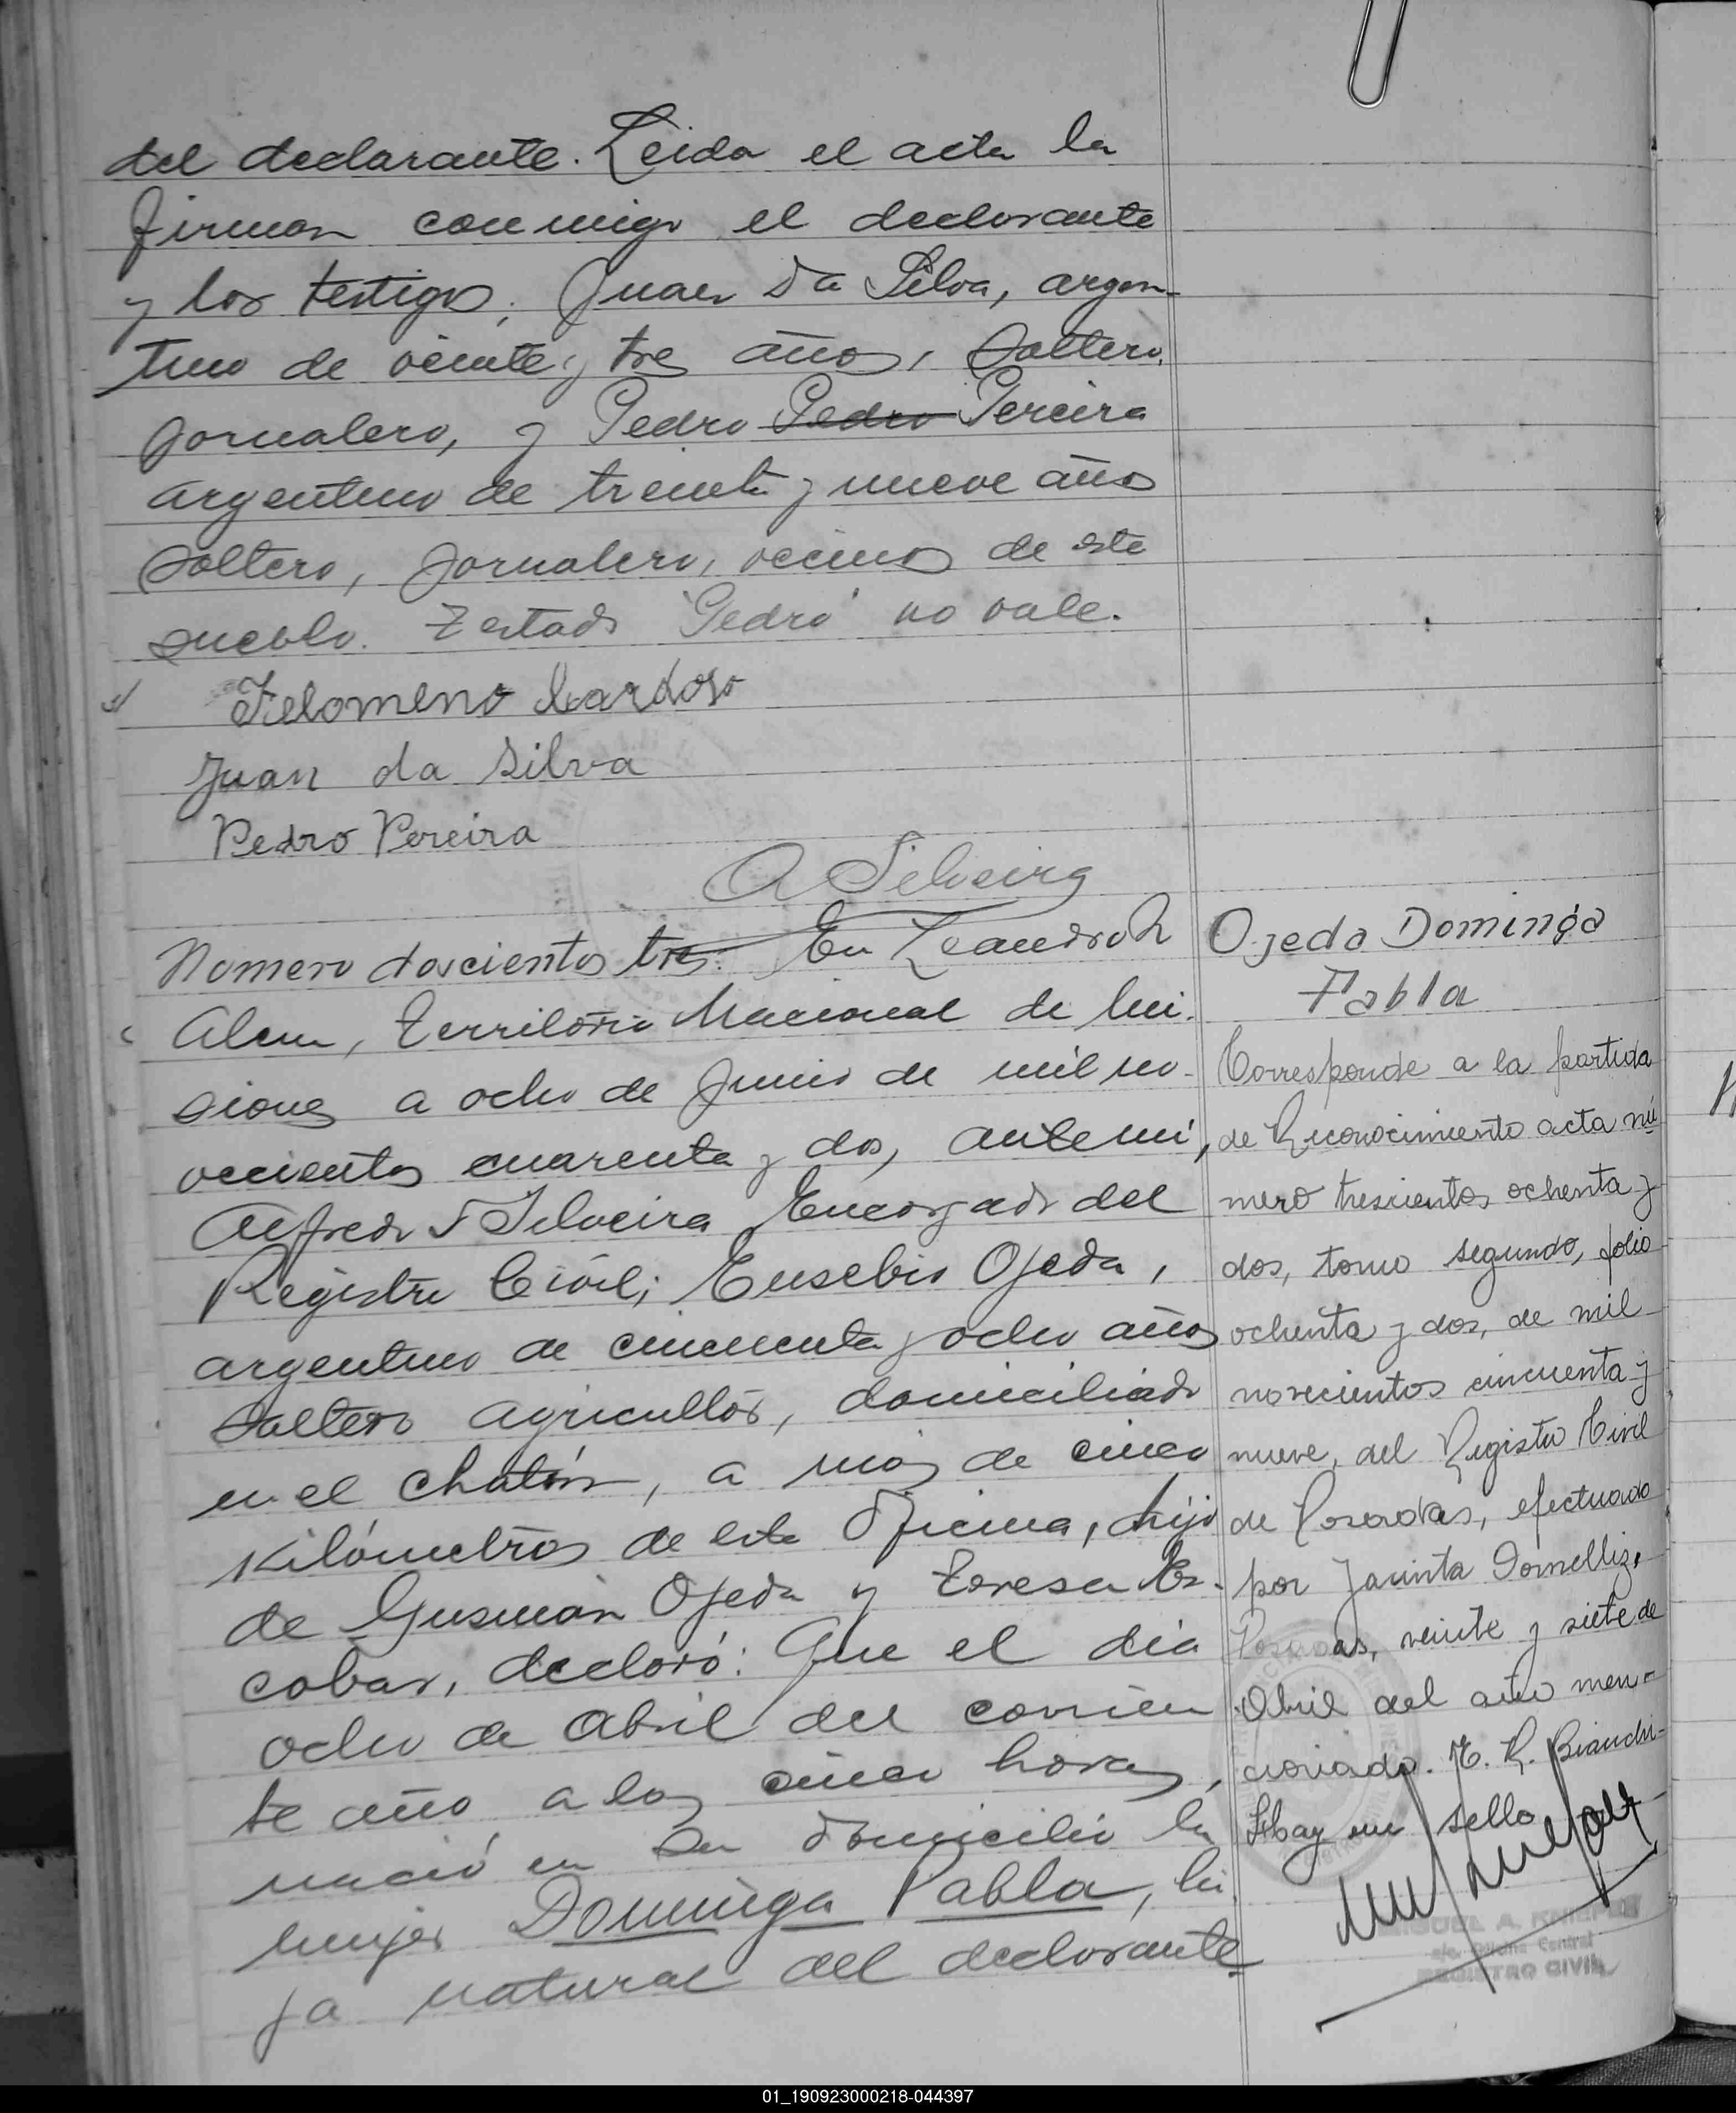 del declarante. Leida el acta la
firman conmigo el declarante
y los testigos; Juan Da Silva, argen-
tino de veinte y tres años, soltero,
jornalero, y Pedro Pedro Pereira
argentino de treinta y nueve años
soltero, jornalero, vecinos de este
pueblo. Testado "Pedro" no vale.
Felomeno Cardoso
Juan da Silva
Pedro Pereira
A Silveira
Nomero doscientos tres. En Leandro N
Alem, Territorio Nacional de Mi-
siones a ocho de Junio de mil no-
vecientos cuarenta y dos, ante mi,
Alfredo Silveira Encargado del
Registro Civil; Eusebio Ojeda,
argentino de cincuenta y ocho años
soltero agricultor, domiciliado
en el Chatón, a mas de cinco
Kilómetros de esta Oficina, hijo
de Gusmán Ojeda y Teresa Es-
cobar, declaró: Que el dia
ocho de Abril del corrien
te año a las cinco horas,
nació en su domicilio la
mujer Dominga Pabla, hi-
ja natural del declarante
Ojeda Dominga
Pabla
Corresponde a la partida
de Reconocimiento acta nú
mero trescientos ochenta y
dos, tomo segundo, folio
ochenta y dos, de mil
novecientos cincuenta y
nueve, del Registro Civil
de Posadas, efectuado
por Jacinta
Posadas, veinte y siete de
Abril del año men-
cionado. E. R. Bianchi-
Hay un sello
MIGUEL A. KNIEPER
Oficina Central
REGISTRO CIVIL
01_190923000218-044397